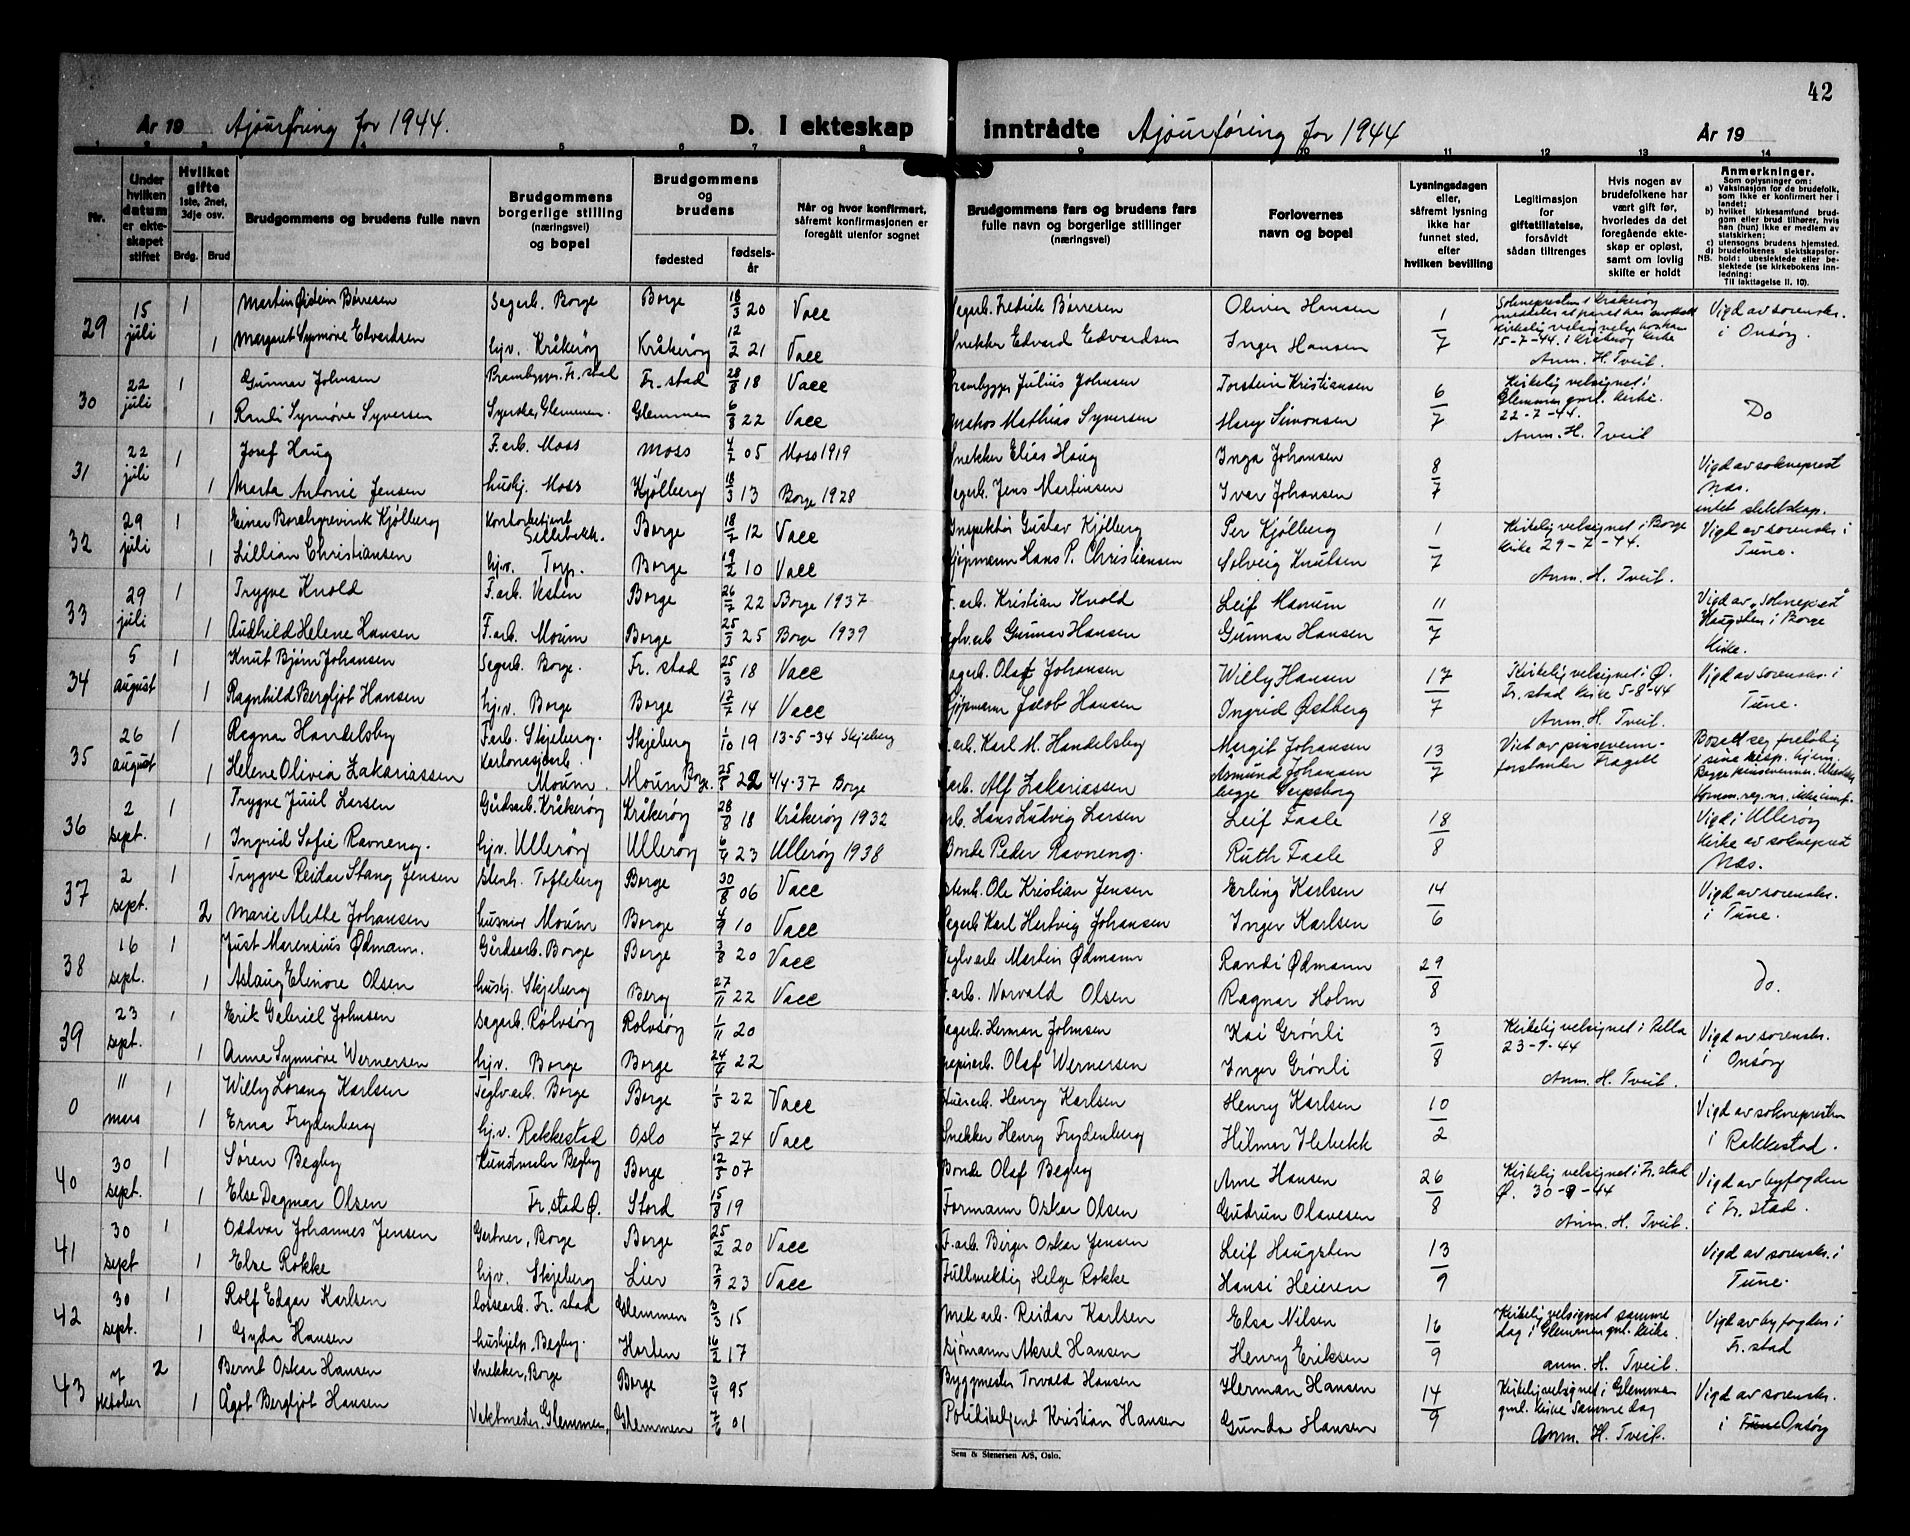 42
År 19 Ajourføring for 1944. D. I ekteskap inntrådte Ajourføring for 1944 År 19
1 2 3 4 5 6 7 8 9 10 11 12 13 14
Nr.
Under hvilken datum er ekteskapet stiftet
Hvilket gifte 1ste, 2net, 3dje osv.
Brdg. Brud
Brudgommens og brudens fulle navn
Brudgommens borgerlige stilling (næringsvei) og bopel
Brudgommens og brudens
fødested
fødselsår
Når og hvor konfirmert, såfremt konfirmasjonen er foregått utenfor sognet
Brudgommens fars og brudens fars fulle navn og borgerlige stillinger (næringsvei)
Forlovernes navn og bopel
Lysningsdagen eller, såfremt lysning ikke har funnet sted, efter hvilken bevilling
Legitimasjon for giftetillatelse, forsåvidt sådan tiltrenges
Hvis nogen av brudefolkene har vært gift før, hvorledes da det foregående ekteskap er opløst, samt om lovlig skifte er holdt
Anmerkninger.
Som oplysninger om:
a) Vaksinasjon for de brudefolk, som ikke er konfirmert her i landet;
b) hvilket kirkesamfund brudgom eller brud tilhører, hvis han (hun) ikke er medlem av statskirken;
c) utensogns brudens hjemsted.
d) brudefolkenes slektskapsforhold; ubeslektede eller beslektede (se kirkebokens innledning:
NB. Til iakttagelse II. 10).
29 15 juli 1 Martin Øistein Børresen Sagarb. Borge Borge 18/3 20 Vacc Sagarb. Fredrik Børresen Oliver Hansen 1/7 Soknepresten i Kråkerøy meddeler at paret har mottatt kirkelig velsignelse 15-7-44 i Kråkerøy kirke Anm. H. Tveit. Vigd av sorenskr. i Onsøy.
1 Margaret Synnøve Edvardsen hjv. Kråkerøy Kråkerøy 12/2 21 Vacc Snekker Edvard Edvardsen Inger Hansen
30 22 juli 1 Gunnar Johnsen Fr.stad Fr. stad 28/8 18 Vacc Julius Johnsen Torstein Kristiansen 6/7 Kirkelig velsignet i Glemmen gml. kirke. 22-7-44. Anm. H. Tveit Do
1 Randi Synnøve Syversen Syerske, Glemmen. Glemmen 6/8 22 Vacc Mathias Syversen Harry Simonsen
31 22 juli 1 Josef Haug F.arb. Moss Moss 4/7 05 Moss 1919 Snekker Elias Haug Inga Johansen 8/7 Vigd av sokneprest Næs. intet slektskap.
1 Marta Antonie Jensen hushj. Moss Kjølberg 18/3 13 Borge 1928 Sagarb. Jens Martinsen Ivar Johansen
32 29 juli 1 Einar Borchgrevink Kjølberg Kontorbetjent Borge 18/7 12 Vacc Inspektør Gustav Kjølberg Per Kjølberg 1/7 Kirkelig velsignet i Borge kirke 29-7-44. Anm. H. Tveit. Vigd av sorenskr. i Tune.
1 Lillian Christiansen hjv. Torp. Borge 19/2 10 Vacc Kjøpmann Hans P. Christiansen Solveig Knutsen
33 29 juli 1 Trygve Knold F.arb. Vesten Borge 26/7 22 Borge 1937 F.arb. Kristian Knold Leif Manum 11/7 Vigd av "Sokneprest" Haugsten i Borge kirke.
1 Audhild Helene Hansen F.arb. Moum Borge 25/3 25 Borge 1939 Teglv.arb Gunnar Hansen Gunnar Hansen
34 5 august 1 Knut Bjørn Johansen Sagarb. Borge. Fr. stad 25/3 18 Vacc Sagarb. Olaf Johansen Willy Hansen 17/7 Kirkelig velsignet i Ø. Fr. stad kirke 5-8-44 Anm. H. Tveit. Vigd av sorenskr. i Tune.
1 Ragnhild Bergljot Hansen hjv. Borge Borge 12/7 14 Vacc Kjøpmann Jacob Hansen Ingrid Østberg
35 26 august 1 Ragnar Handelsby F.arb. Skjeberg. Skjeberg 1/10 19 13-5-34 Skjeberg F.arb. Karl M. Handelsby Margit Johansen 13/7 Viet av pinsevennforstander Fragell Bosatt seg foreløbig i sine resp. hjem. Begge pinsevenner.
1 Helene Olivia Zakariassen Moum. Moum Borge. 25/5 22 4/4-37 Borge F.arb. Alf Zakariassen Asmund Johansen begge Sarpsborg
36 2 sept. 1 Trygve Juul Larsen Gårdsarb. Kråkerøy Kråkerøy 28/8 18 Kråkerøy 1932 arb. Hans Ludvig Larsen Leif Faale 18/8 Vigd i Ullerøy kirke av sokneprest Næs.
1 Ingrid Sofie Ravneng. hjv. Ullerøy Ullerøy 6/4 23 Ullerøy 1938 Bonde Peder Ravneng. Ruth Faale
37 2 sept. 1 Trygve Reidar Stang Jensen stenh. Tofteberg Borge 30/8 06 Vacc stenh. Ole Kristian Jensen Erling Karlsen 14/6 Vigd av sorenskr. i Tune.
2 Marie Alette Johansen husmor Moum Borge 4/9 10 Vacc Sagarb Karl Hertvig Johansen Inger Karlsen
38 16 sept. 1 Just Marensius Ødmann. Gårdsarb. Borge Borge 3/8 20 Vacc Teglv.arb Martin Ødmann Randi Ødmann 29/8 Do.
1 Aslaug Elinore Olsen hushj. Skjeberg Berg 27/11 22 Vacc F.arb. Norvald Olsen Ragnar Holm
39 23 sept. 1 Erik Gabriel Johnsen Sagarb. Rolvsøy Rolvsøy 1/11 20 Sagarb. Herman Johnsen Kai Grønli 3/8 Kirkelig velsignet i Bella 23-9-44 Anm. H. Tveit. Vigd av sorenskr. i Onsøy
1 Anne Synnøve Wernersen hjv. Borge Borge 24/4 22 Papirarb. Olaf Wernersen Inger Grønli
0 11 mars 1 Willy Lorang Karlsen Teglv.arb. Borge Borge 1/5 22 Vacc Henry Karlsen Henry Karlsen 10/2 Vigd av soknepresten i Rakkestad.
1 Erna Frydenberg hj.v. Rakkestad Oslo 4/5 24 Vacc Snekker Henry Frydenberg Hilmar Ilebekk
40 30 sept. 1 Søren Begby Kunstmaler Begby Borge 12/3 07 Bonde Olaf Begby Arne Hansen 26/8 Kirkelig velsignet i Fr. stad Ø. 30-9-44 Anm. H. Tveit. Vigd av byfogden i Fr. stad.
1 Else Dagmar Olsen Fr. stad Ø. Stord 15/8 19 Formann Oskar Olsen Gudrun Olavesen
41 30 sept 1 Oddvar Johannes Jensen Gartner, Borge Borge 25/2 20 Vacc F.arb. Birger Oskar Jensen Leif Haugsten 13/9 Vigd av sorenskr. i Tune.
1 Else Rokke hjv. Skjeberg Lier 7/9 23 Vacc Fullmektig Helge Rokke Hansi Heieren
42 30 sept. 1 Rolf Edgar Karlsen Lossearb. Fr. stad Glemmen 3/3 15 Mek arb. Reidar Karlsen Elsa Nilsen 16/9 Kirkelig velsignet samme dag i Glemmen gml. kirke. anm. H. Tveit. Vigd av byfogden i Fr. stad
1 Gyda Hansen hushjelp, Begby. Horten 16/2 17 Sjømann Aksel Hansen Henry Eriksen
43 7 oktober 2 Bernt Oskar Hansen Snekker, Borge Borge 3/4 95 Byggmester Torvald Hansen Herman Hansen 14/9 Kirkelig velsignet i Glemmen gml. kirke samme dag Anm. H. Tveit. Vigd av sorenskr. i Tune Onsøy
1 Ågot Bergljot Hansen Vaktmester. Glemmen, Glemmen 7/6 01 Politibetjent Kristian Hansen Gunda Hansen
Sem & Stenersen A/S, Oslo.